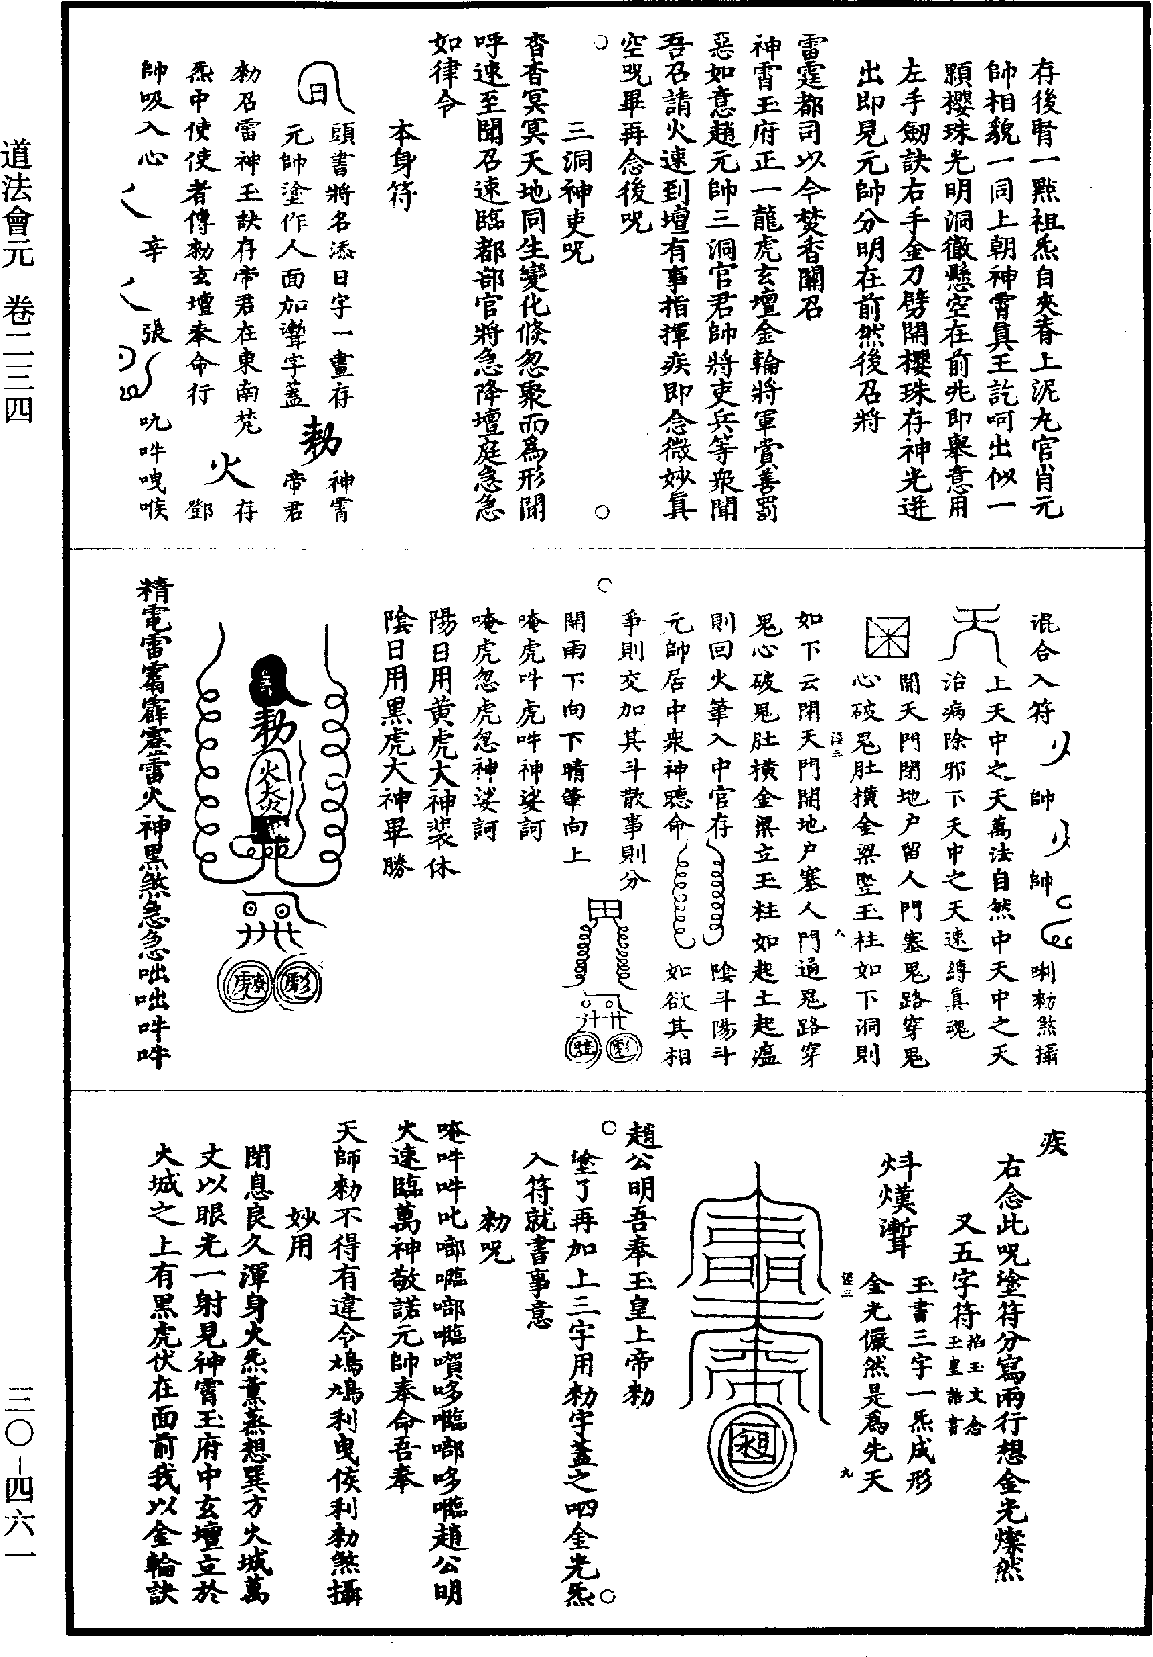 道法會元　卷二三四
三〇－四六一
存後腎一點祖炁自夾脊上泥丸宮肖元
帥相貌一同上朝神霄真王訖呵出似一
顆櫻珠光明洞徹懸空在前兆即舉意用
左手劒訣右手金刀劈開櫻珠存神光迸
出即見元帥分明在前然後召將
雷霆都司以今焚香關召
神霄玉府正一龍虎玄壇金輪將軍賞善罰
惡如意趙元帥三洞官君帥將吏兵等衆聞
吾召請火速到壇有事指揮疾即念微妙真
空呪畢再念後呪
三洞神吏呪
杳杳冥冥天地同生變化倏忽聚而爲形聞
呼速至聞召速臨都部官將急降壇庭急急
如律令
本身符
頭書將名添日字一畫存　神霄
元帥塗作人面加灊字蓋　勑　帝君
勑召雷神玉訣存帝君在東南梵　存
炁中使使者傳勑玄壇奉命行　火　鄧
帥吸入心　辛　張　吭吽嘬喉
混合入符　帥　帥　唎勑煞攝
上天中之天萬法自然中天中之天
治病除邪下天中之天速縛真魂
開天門閉地户留人門塞鬼路穿鬼
心破鬼肚橫金梁竪玉柱如下洞則
如下云閉天門開地户塞人門通鬼路穿
鬼心破鬼肚橫金梁立玉柱如起土起瘟
則回火筆入中宮存　陰斗陽斗
元帥居中衆神聽命　如欲其相
爭則交加其斗散事則分
開雨下向下晴筆向上
唵虎吽虎吽神娑訶
唵虎忽虎忽神娑訶
陽日用黃虎大神裝休
陰日用黑虎大神畢勝
勑
精電雷霹靂雷火神黑煞急急咄咄吽吽
疾
右念此呪塗符分寫兩行想金光燦然
又五字符
玉書三字一炁成形
金光儼然是爲先天
趙公明吾奉玉皇上帝勑
塗了再加上三字用勑字蓋之呬金光炁
入符就書事意
勑呪
唵吽吽叱啣𠻴啣𠻴嗔哆𠻴啣哆𠻴趙公明
火速臨萬神敬諾元帥奉命吾奉
天師勑不得有違令鳩鳩利曳侯利勑煞攝
妙用
閉息良久渾身火炁薰蒸想巽方火城萬
丈以眼光一射見神霄玉府中玄壇立於
火城之上有黑虎伏在面前我以金輪訣